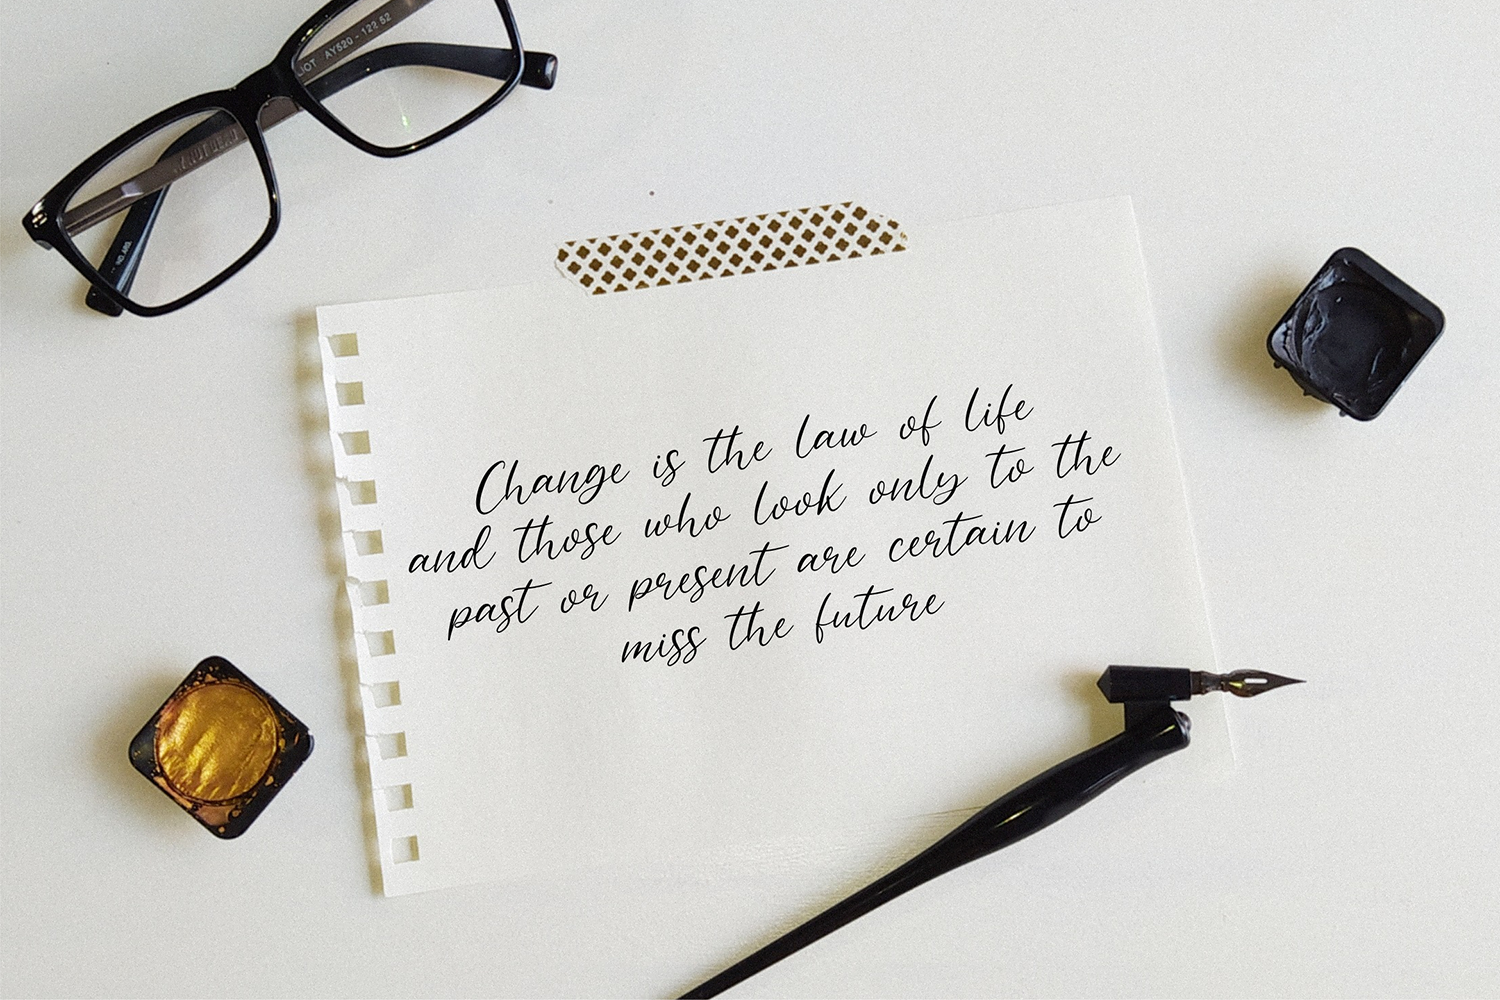 AY520 - 122 52
Change is the law of life
and those who look only to the
past or present are certain to
miss the future